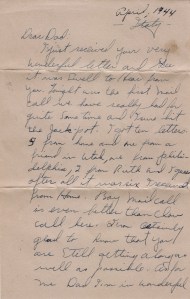 April, 1944
Italy
Dear Dad
I just received your very
wonderful letter and Gee
it was swell to hear from
you. Tonight was the first mail
call I've have really had for
quite some time and I sure hit
the Jackpot. I got ten letters
5 from home and one from a
friend in Utah, one from Phila-
delphia, 2 from Ruth and I guess
after all it was six I received
from Home. Boy mail call
is even better than chow
call here. I'm certainly
glad to know that you
are still getting along as
well as possible. As for
me Dad I'm in wonderful